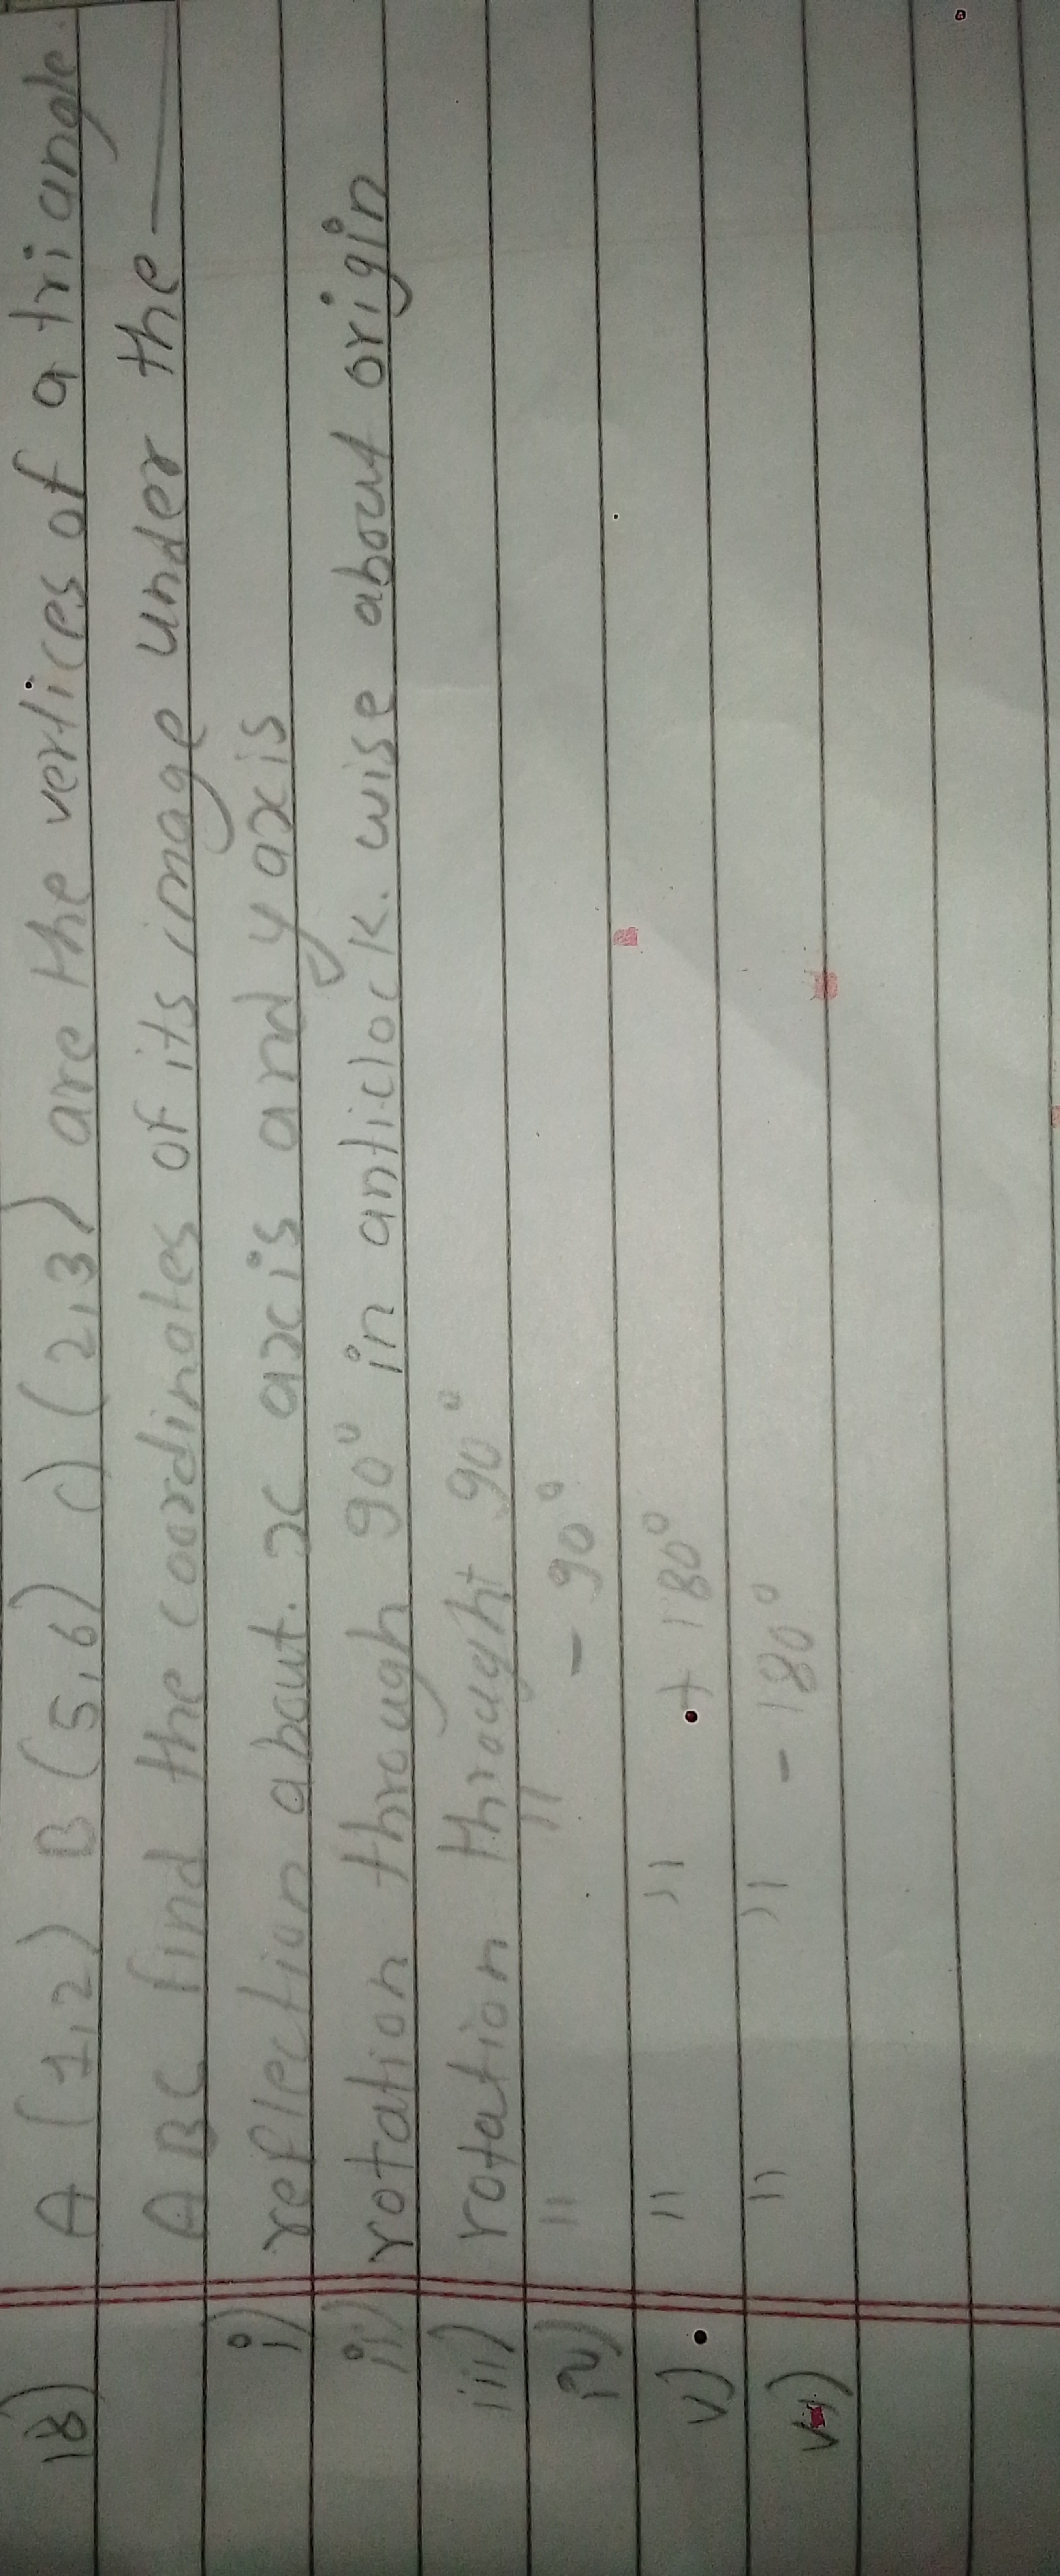 18) A (1,2) B (5,6) c) (2,3) are the vertices of a triangle.
ABC find the coordinates of its image under the —
i) reflection about. x axis and y axis
ii) rotation through 90° in anticlock. wise about origin
iii) rotation throught 90°
iv) " " - 90°
v) " " + 180°
vi) " " - 180°